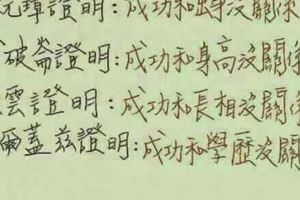 元璋證明：成功和出身沒關係
破崙證明：成功和身高沒關係
雲證明：成功和長相沒關係
爾蓋茲證明：成功和學歷沒關